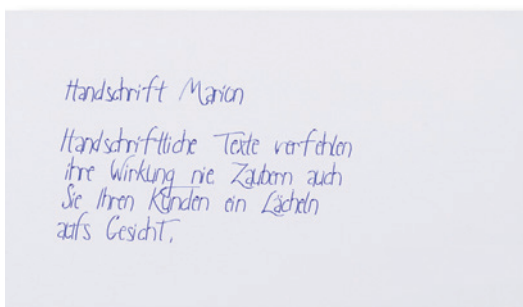 Handschrift Marion
Handschriftliche Texte verfehlen
ihre Wirkung nie Zaubern auch
Sie Ihren Kunden ein Lächeln
aufs Gesicht.